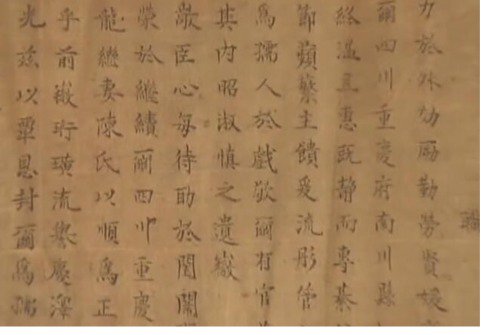 力於外劬勤勞賢媛
爾四川重慶府南川縣
終溫且惠既靜而專綦
節蘋蘩主饋爰流彤管
為孺人於戲敬爾有官
其內昭淑慎之遺徽
敬臣心每待助於閨闈
榮於繼續爾四川重慶
龍繼妻陳氏以順為正
乎前徽珩璜流譽廣澤
光茲以覃恩封爾為孺